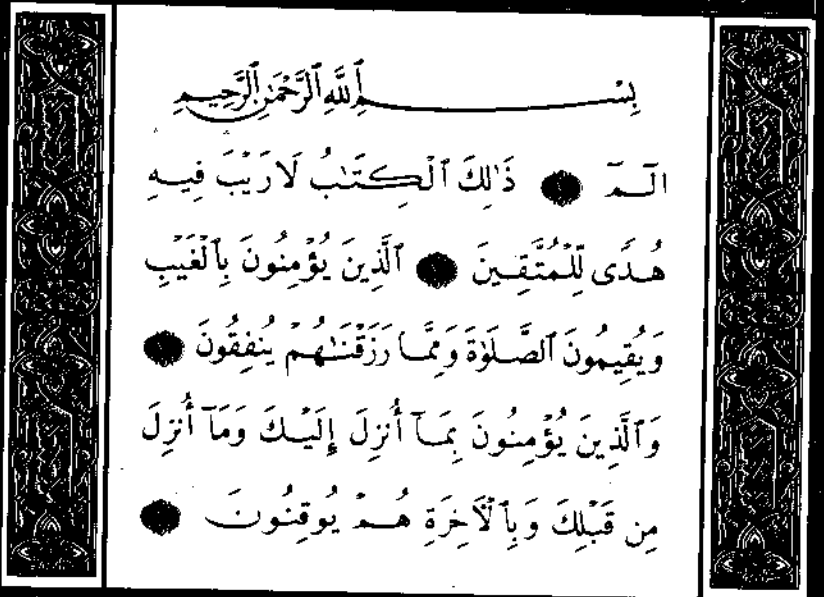 بِسْمِ ٱللَّهِ ٱلرَّحْمَٰنِ ٱلرَّحِيمِ
الٓمٓ ذَٰلِكَ ٱلْكِتَٰبُ لَا رَيْبَ فِيهِ
هُدًى لِّلْمُتَّقِينَ ٱلَّذِينَ يُؤْمِنُونَ بِٱلْغَيْبِ
وَيُقِيمُونَ ٱلصَّلَوٰةَ وَمِمَّا رَزَقْنَٰهُمْ يُنفِقُونَ
وَٱلَّذِينَ يُؤْمِنُونَ بِمَآ أُنزِلَ إِلَيْكَ وَمَآ أُنزِلَ
مِن قَبْلِكَ وَبِٱلْأَخِرَةِ هُمْ يُوقِنُونَ